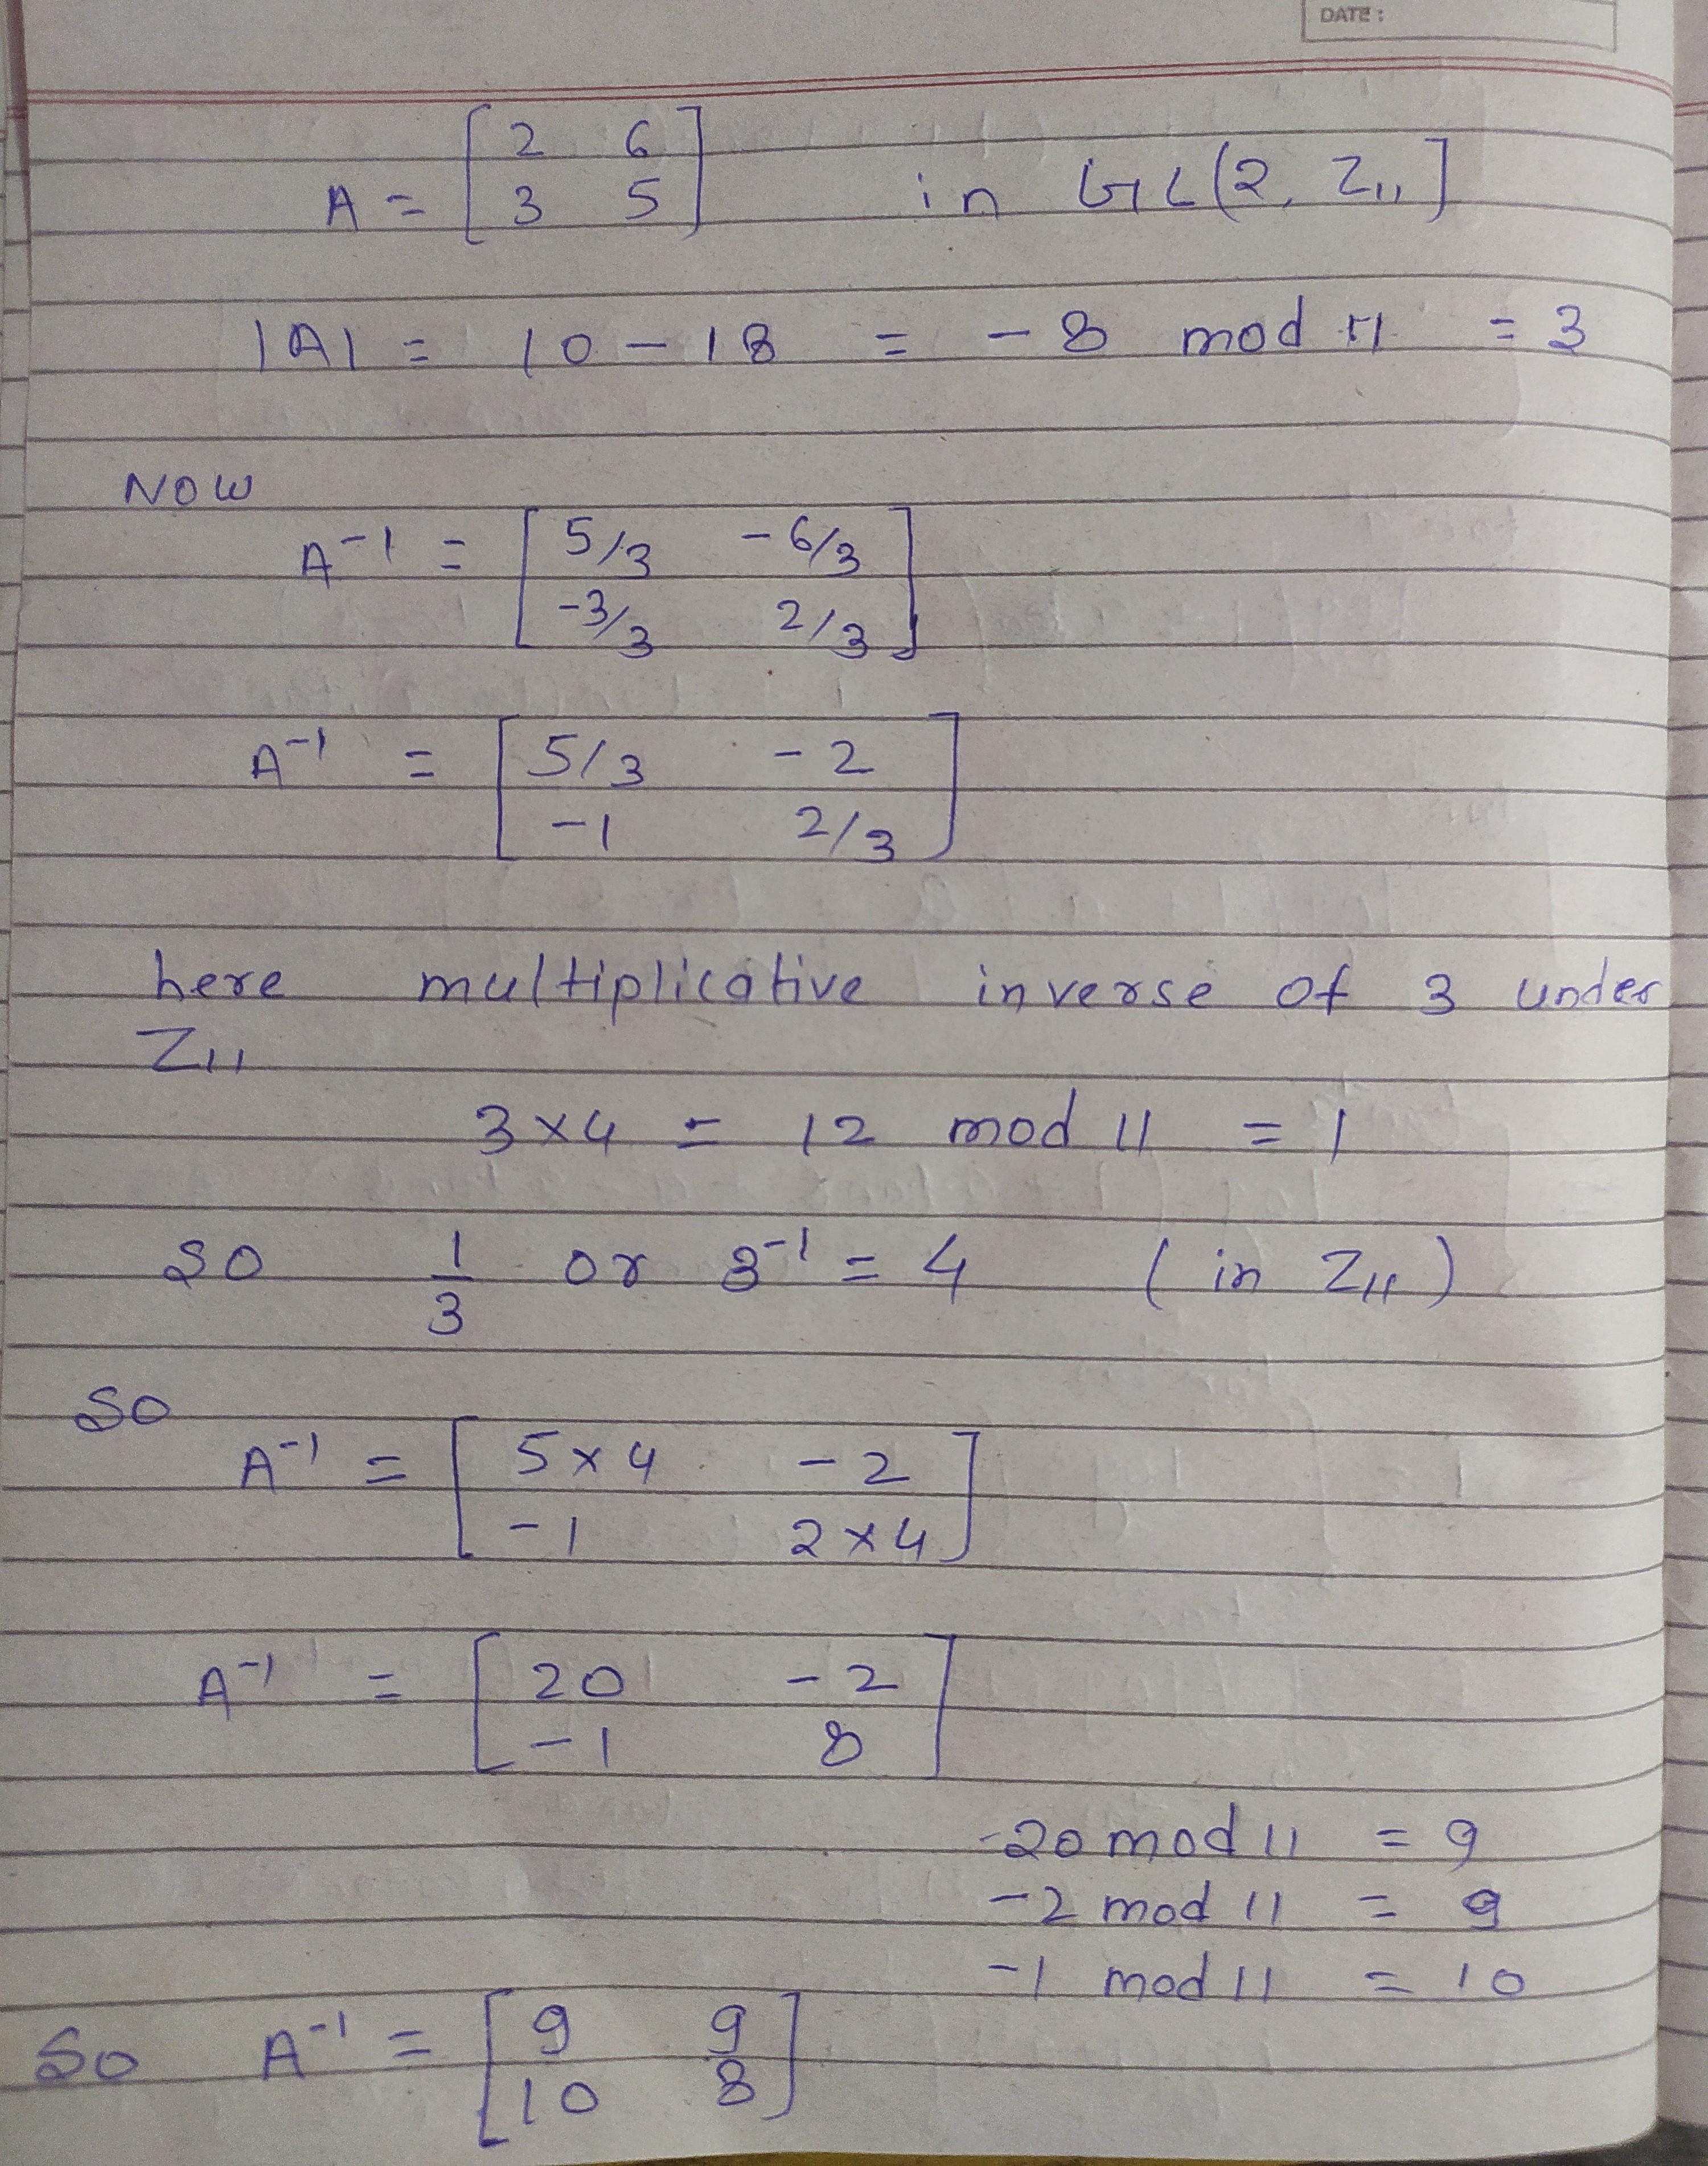 DATE :
A = [ 2 6 ; 3 5 ] in GL(2, Z₁₁]
|A| = 10 - 18 = - 8 mod 11 = 3
NOW
A⁻¹ = [ 5/3 -6/3 ; -3/3 2/3 ]
A⁻¹ = [ 5/3 -2 ; -1 2/3 ]
here multiplicative inverse of 3 under
Z₁₁
3 × 4 = 12 mod 11 = 1
so 1/3 or 3⁻¹ = 4 ( in Z₁₁ )
so
A⁻¹ = [ 5×4 -2 ; -1 2×4 ]
A⁻¹ = [ 20 -2 ; -1 8 ]
-20 mod 11 = 9
-2 mod 11 = 9
-1 mod 11 = 10
So A⁻¹ = [ 9 9 ; 10 8 ]